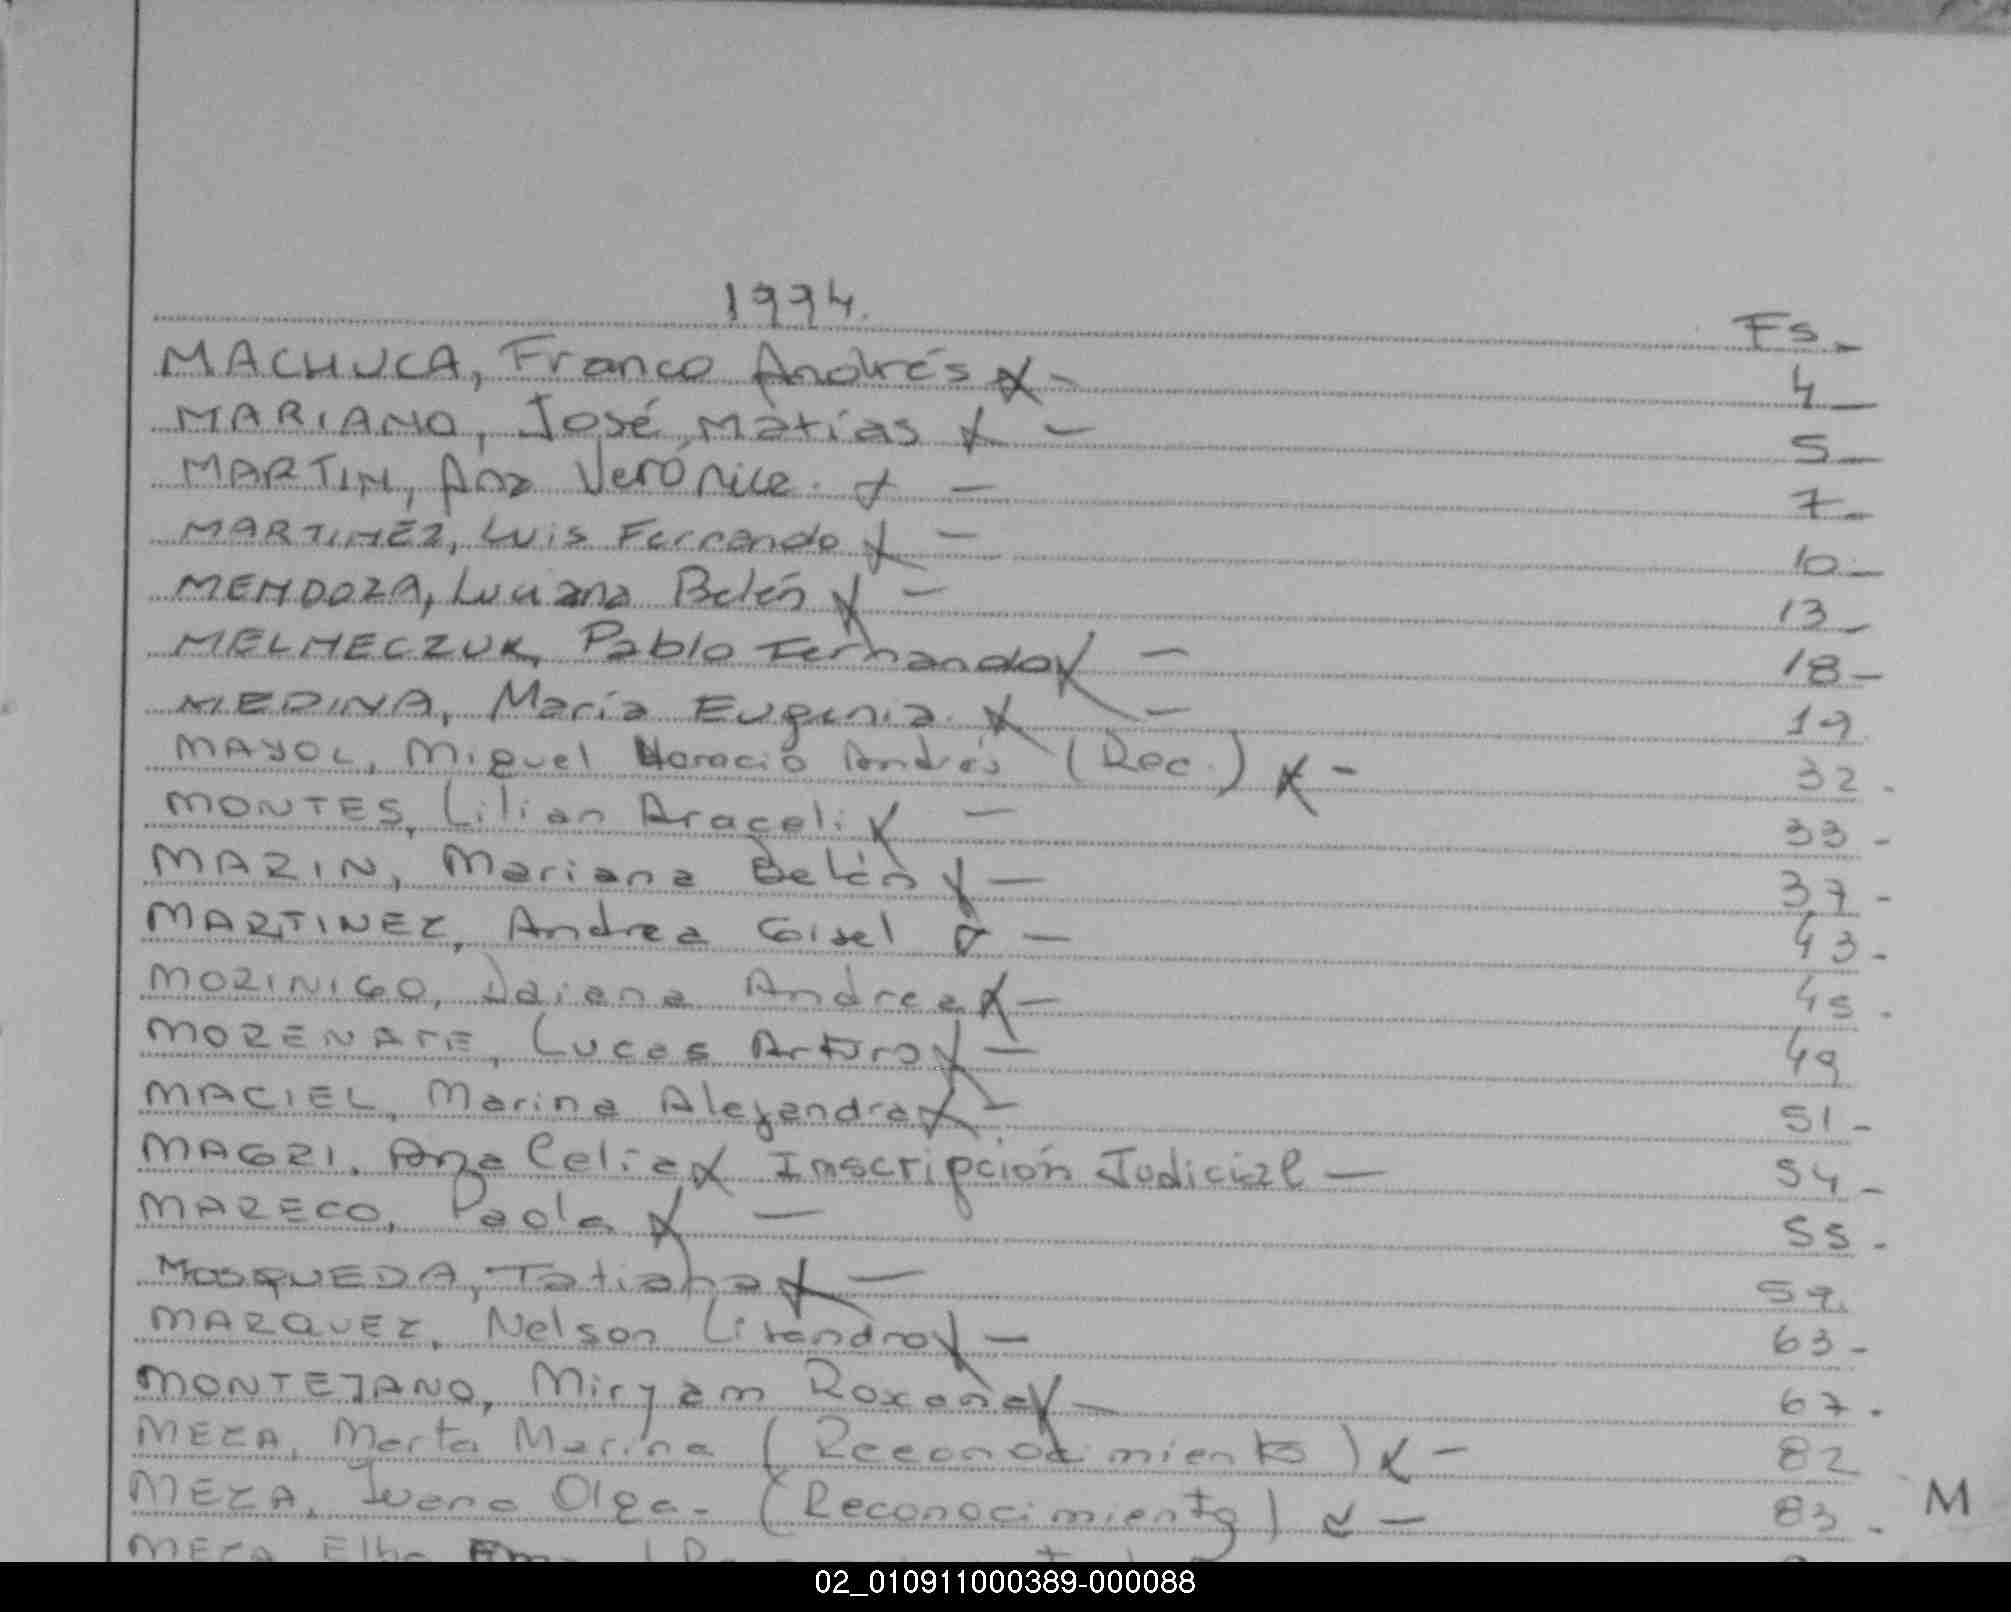 1994.
Fs_
MACHUCA, Franco Andrés 4_
MARIANO, José Matías — 5_
MARTIN, Ana Verónica. — 7_
MARTINEZ, Luis Fernando — 10_
MENDOZA, Luciana Belén — 13_
MELNECZUK, Pablo Fernando — 18_
MEDINA, María Eugenia. — 19
MAYOL, Miguel Horacio Andrés (Rec.) - 32.
MONTES, Lilian Araceli — 33-
MARIN, Mariana Belén — 37-
MARTINEZ, Andrea Gisel — 43-
MORINIGO, Daiana Andrea — 45.
MORENATE, Lucas Arturo — 49
MACIEL, Marina Alejandra — 51-
MAGRI, Ana Celia Inscripción Judicial — 54-
MARECO, Paola — 55.
MOSQUEDA, Tatiana — 59.
MARQUEZ, Nelson Lisandro — 63-
MONTEJANO, Miryam Roxana — 67.
MEZA, Marta Marina (Reconocimiento) - 82
MEZA, Juana Olga- (Reconocimiento) — 83-
M
MEZA Elba
02_010911000389-000088